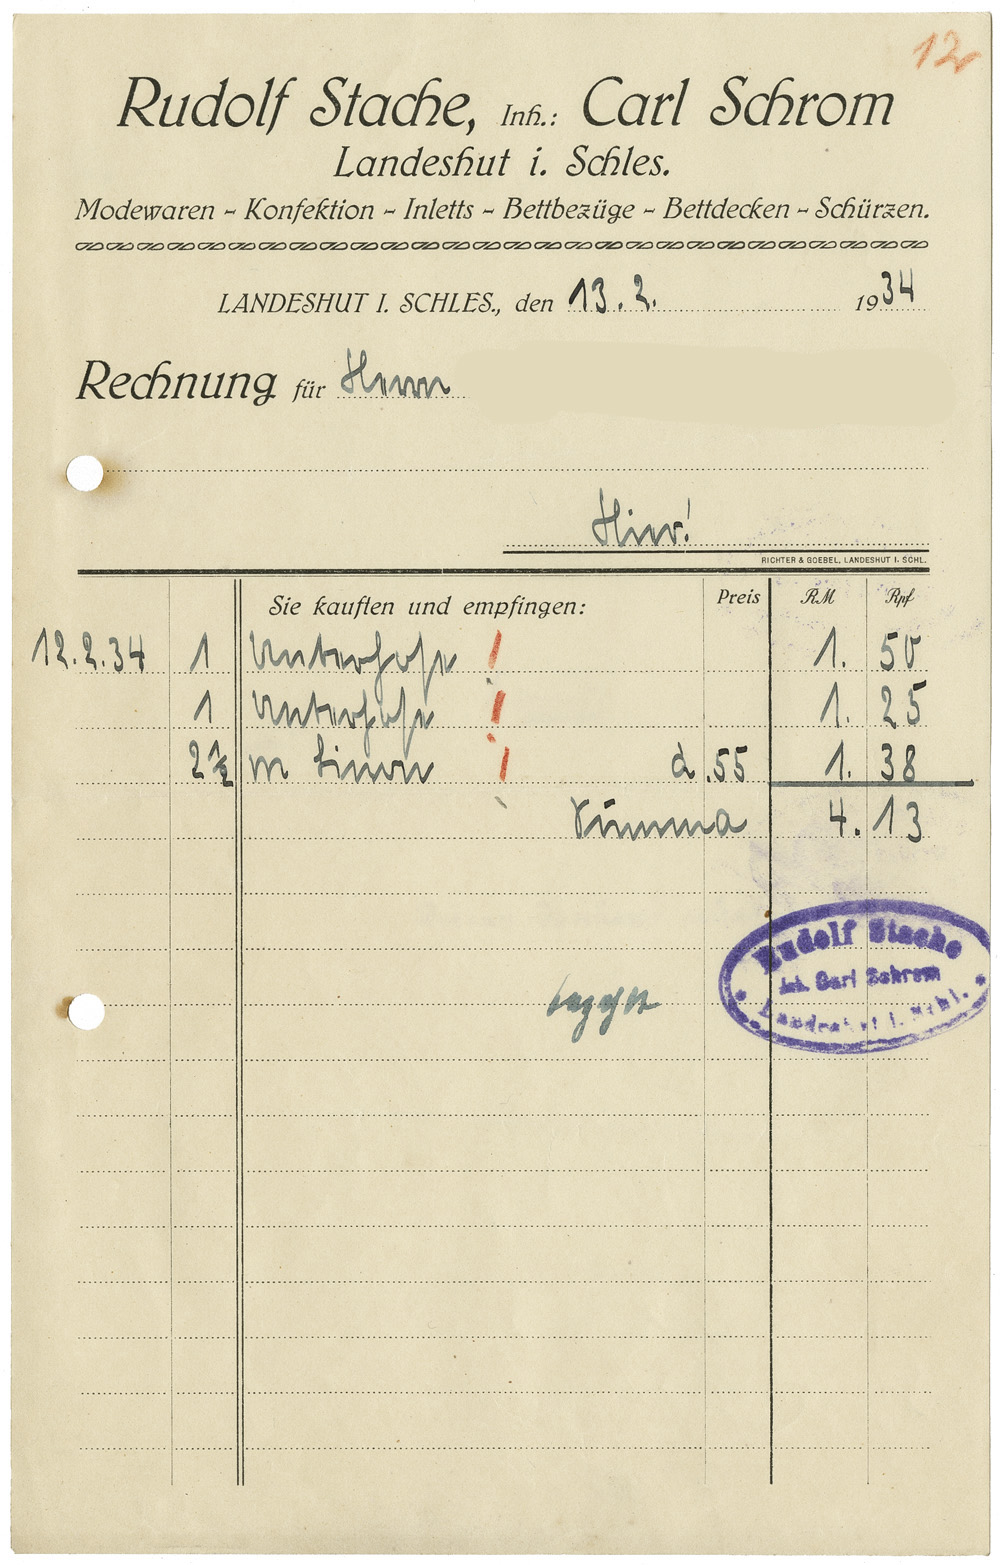 12
Rudolf Stache, Inh.: Carl Schrom
Landeshut i. Schles.
Modewaren - Konfektion - Inletts - Bettbezüge - Bettdecken - Schürzen.
LANDESHUT I. SCHLES., den 13.2. 1934
Rechnung für Herrn
Hier!
RICHTER & GOEBEL, LANDESHUT I. SCHL.
Sie kauften und empfingen: Preis RM Rpf
12.2.34 1 Unterhose 1. 50
1 Unterhose 1. 25
2 1/2 m Linon à .55 1. 38
Summa 4. 13
Rudolf Stache
Inh. Carl Schrom
Landeshut i. Schl.